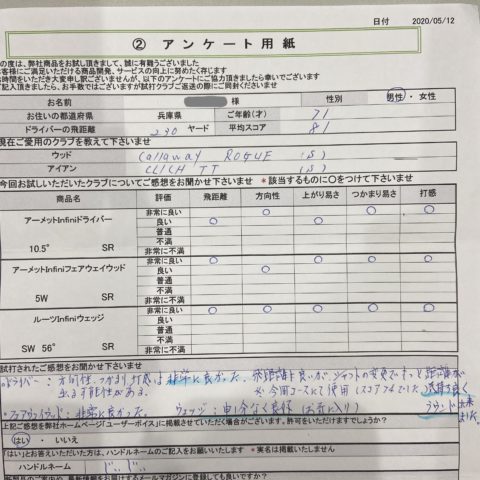 日付 2020/05/12
② アンケート用紙
の度は、弊社商品をお試し頂きまして、誠に有難うございました
客様にご満足いただける商品開発、サービスの向上に努めたく存じます
時間をいただき大変申し訳ございませんが、以下のアンケートにご協力頂きましたら幸いでございます
ご記入頂きましたら、お手数ではございますが試打クラブご返送の際にご同封くださいませ
お名前 様 性別 男性・女性
お住いの都道府県 兵庫県 ご年齢(才) 71
ドライバーの飛距離 230 ヤード 平均スコア 81
現在ご愛用のクラブを教えて下さいませ
ウッド Callaway ROGUE (S)
アイアン TT (S)
今回お試しいただいたクラブについてご感想をお聞かせ下さいませ *該当するものに○をつけて下さいませ
商品名 評価 飛距離 方向性 上がり易さ つかまり易さ 打感
アーメットInfiniドライバー 10.5° SR
非常に良い ○ ○ ○
良い ○ ○
普通
不満
非常に不満
アーメットInfiniフェアウェイウッド 5W SR
非常に良い ○ ○ ○ ○
良い ○
普通
不満
非常に不満
ルーツInfiniウェッジ SW 56° SR
非常に良い ○ ○ ○ ○ ○
良い
普通
不満
非常に不満
試打されたご感想をお聞かせ下さいませ
ドライバー:方向性、つかまり打感は非常に良かった。飛距離も良いが、シャフトの変更でもっと距離が
出る可能性がある。 今回コースにて使用(スコア74でした)気持ち良く
フェアウェイウッド:非常に良かった。 ウェッジ:申し分なく良好(お気に入り) ラウンド出来ました。
上記ご感想を弊社ホームページ「ユーザーボイス」に掲載させていただく場合がございます。許可をいただけますでしょうか?
はい ・ いいえ
「はい」とお答えいただいた方は、ハンドルネームのご記入をお願いいたします *実名は掲載いたしません
ハンドルネーム じぃじぃ